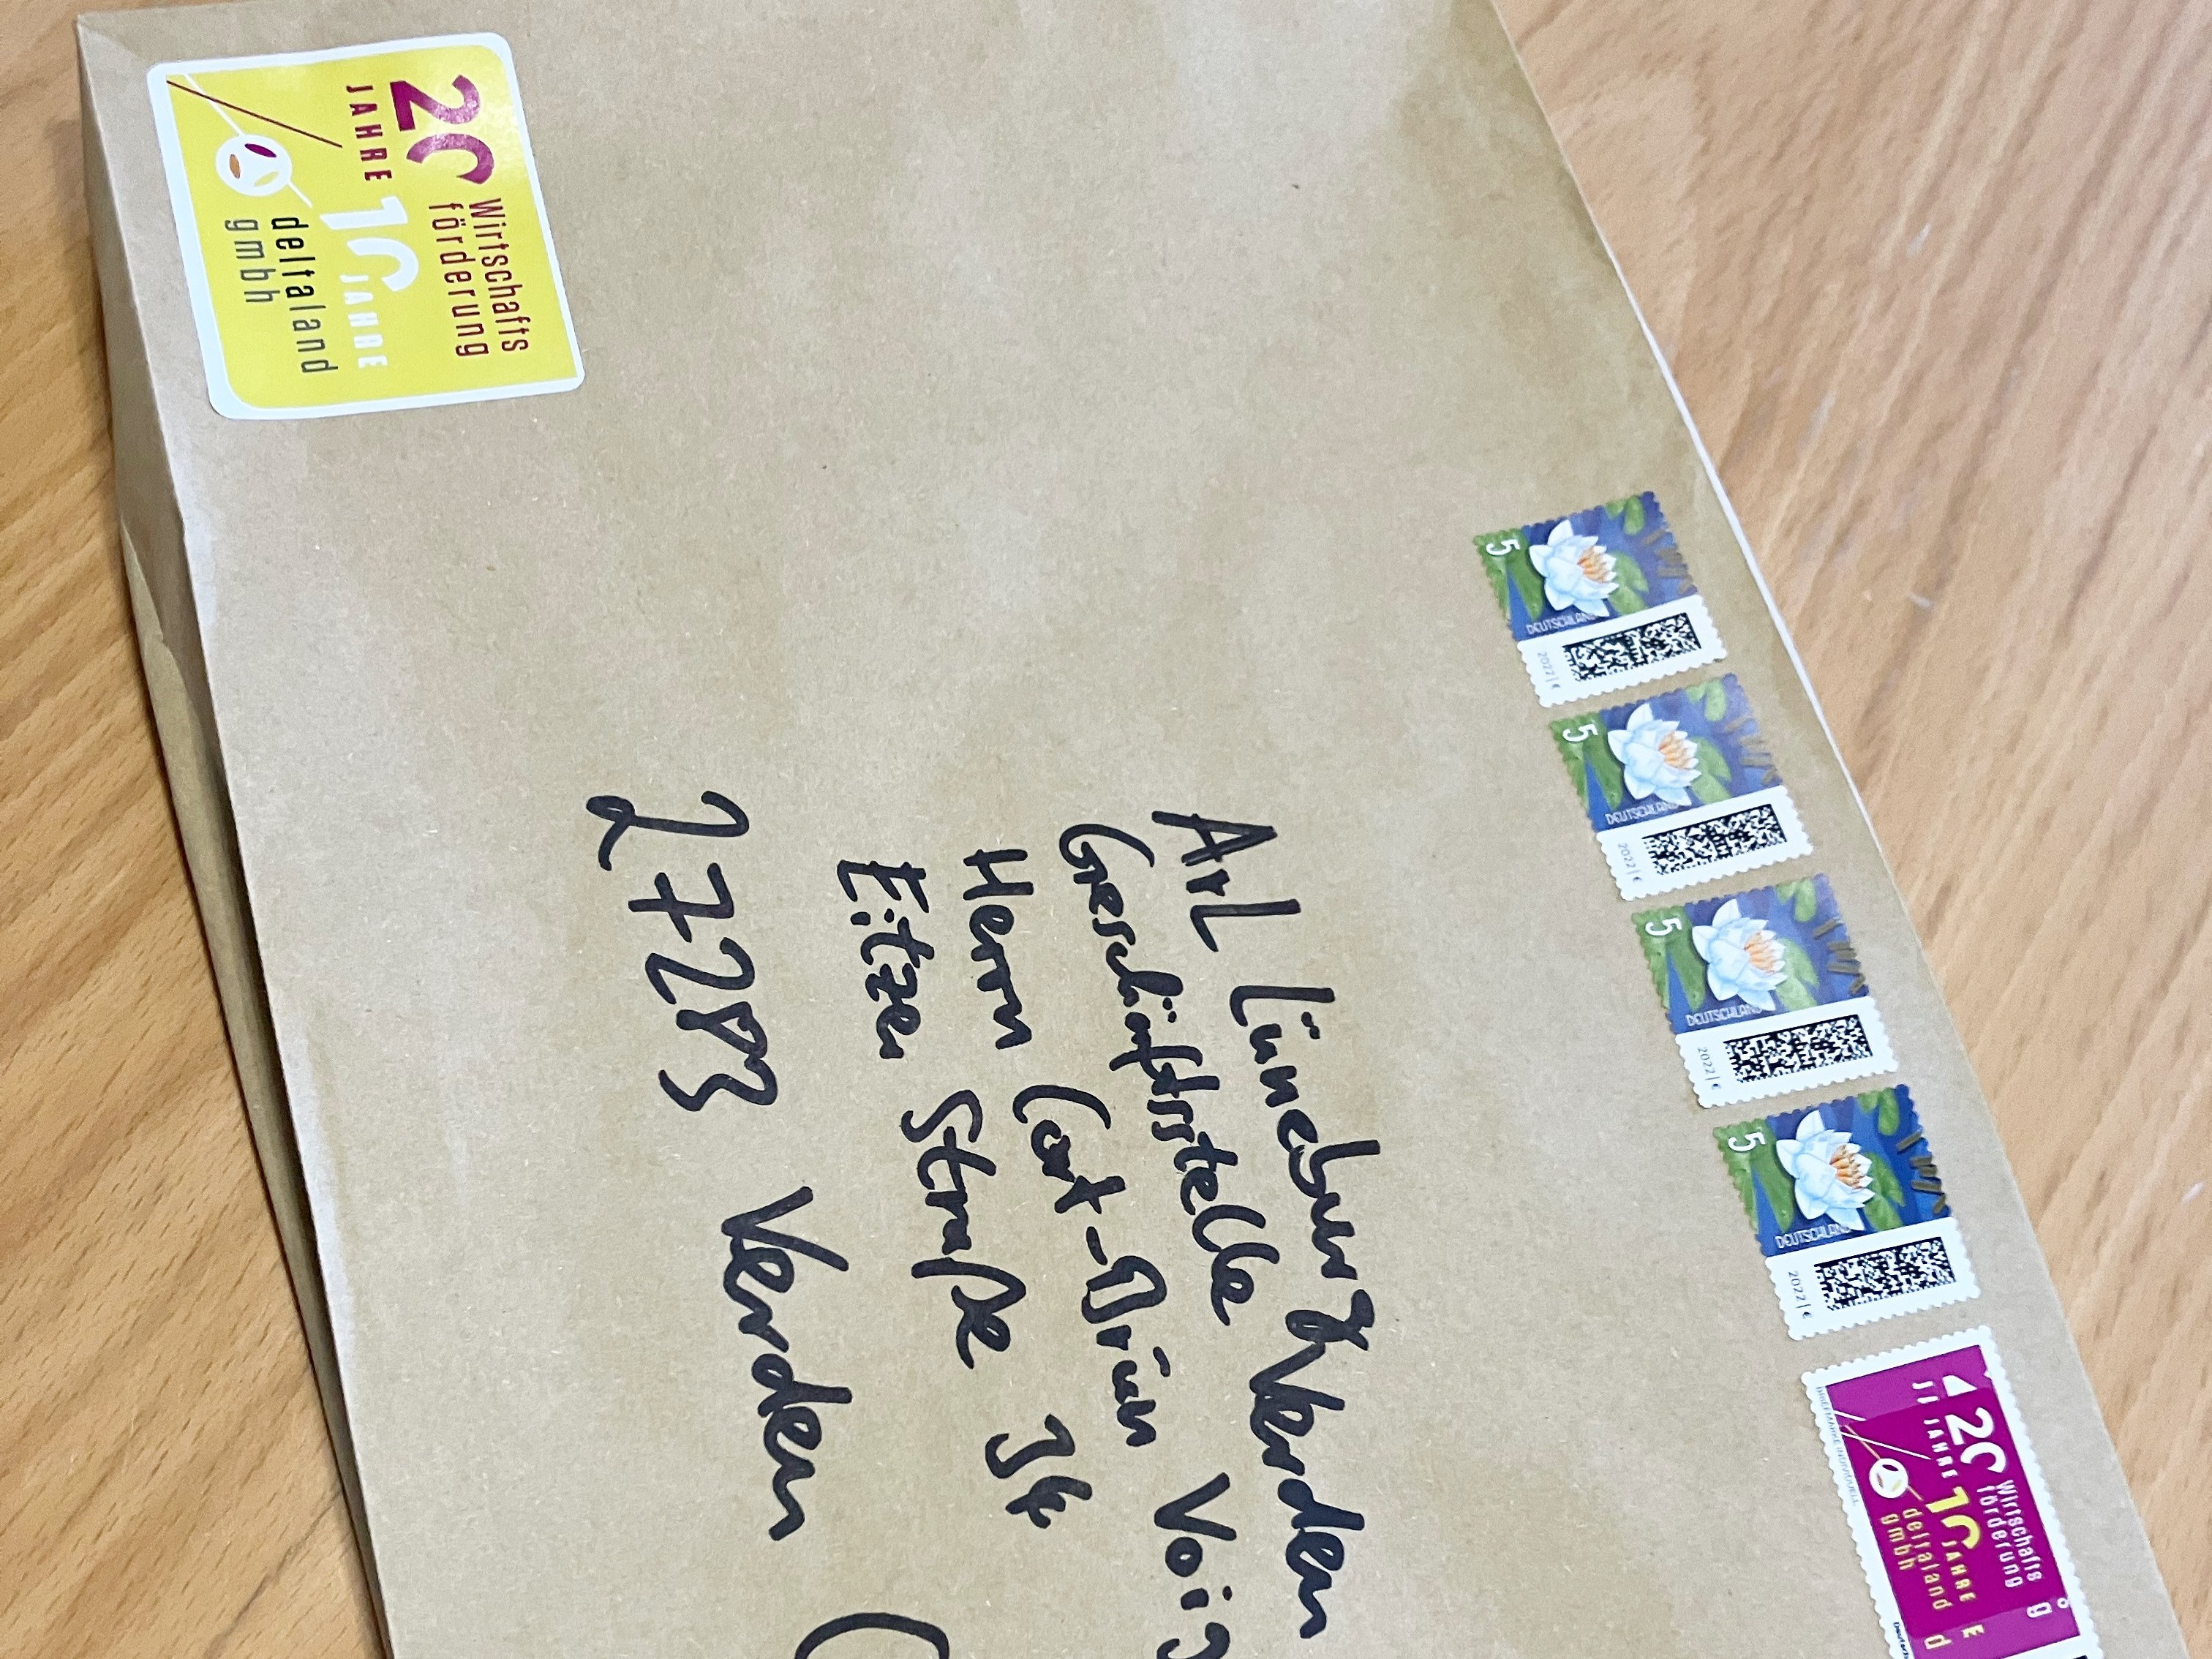 20 Wirtschafts
JAHRE förderung
10 JAHRE
deltaland
gmbh
5
DEUTSCHLAND
2022 | €
5
DEUTSCHLAND
2022 | €
5
DEUTSCHLAND
2022 | €
5
DEUTSCHLAND
2022 | €
20 Wirtschafts
JAHRE förderung
10 JAHRE
deltaland
gmbh
BRIEFMARKE INDIVIDUELL
ArL Lüneburg Verden
Geschäftsstelle
Herrn Cort-Brün Voig
Eitzer Straße 34
27283 Verden (